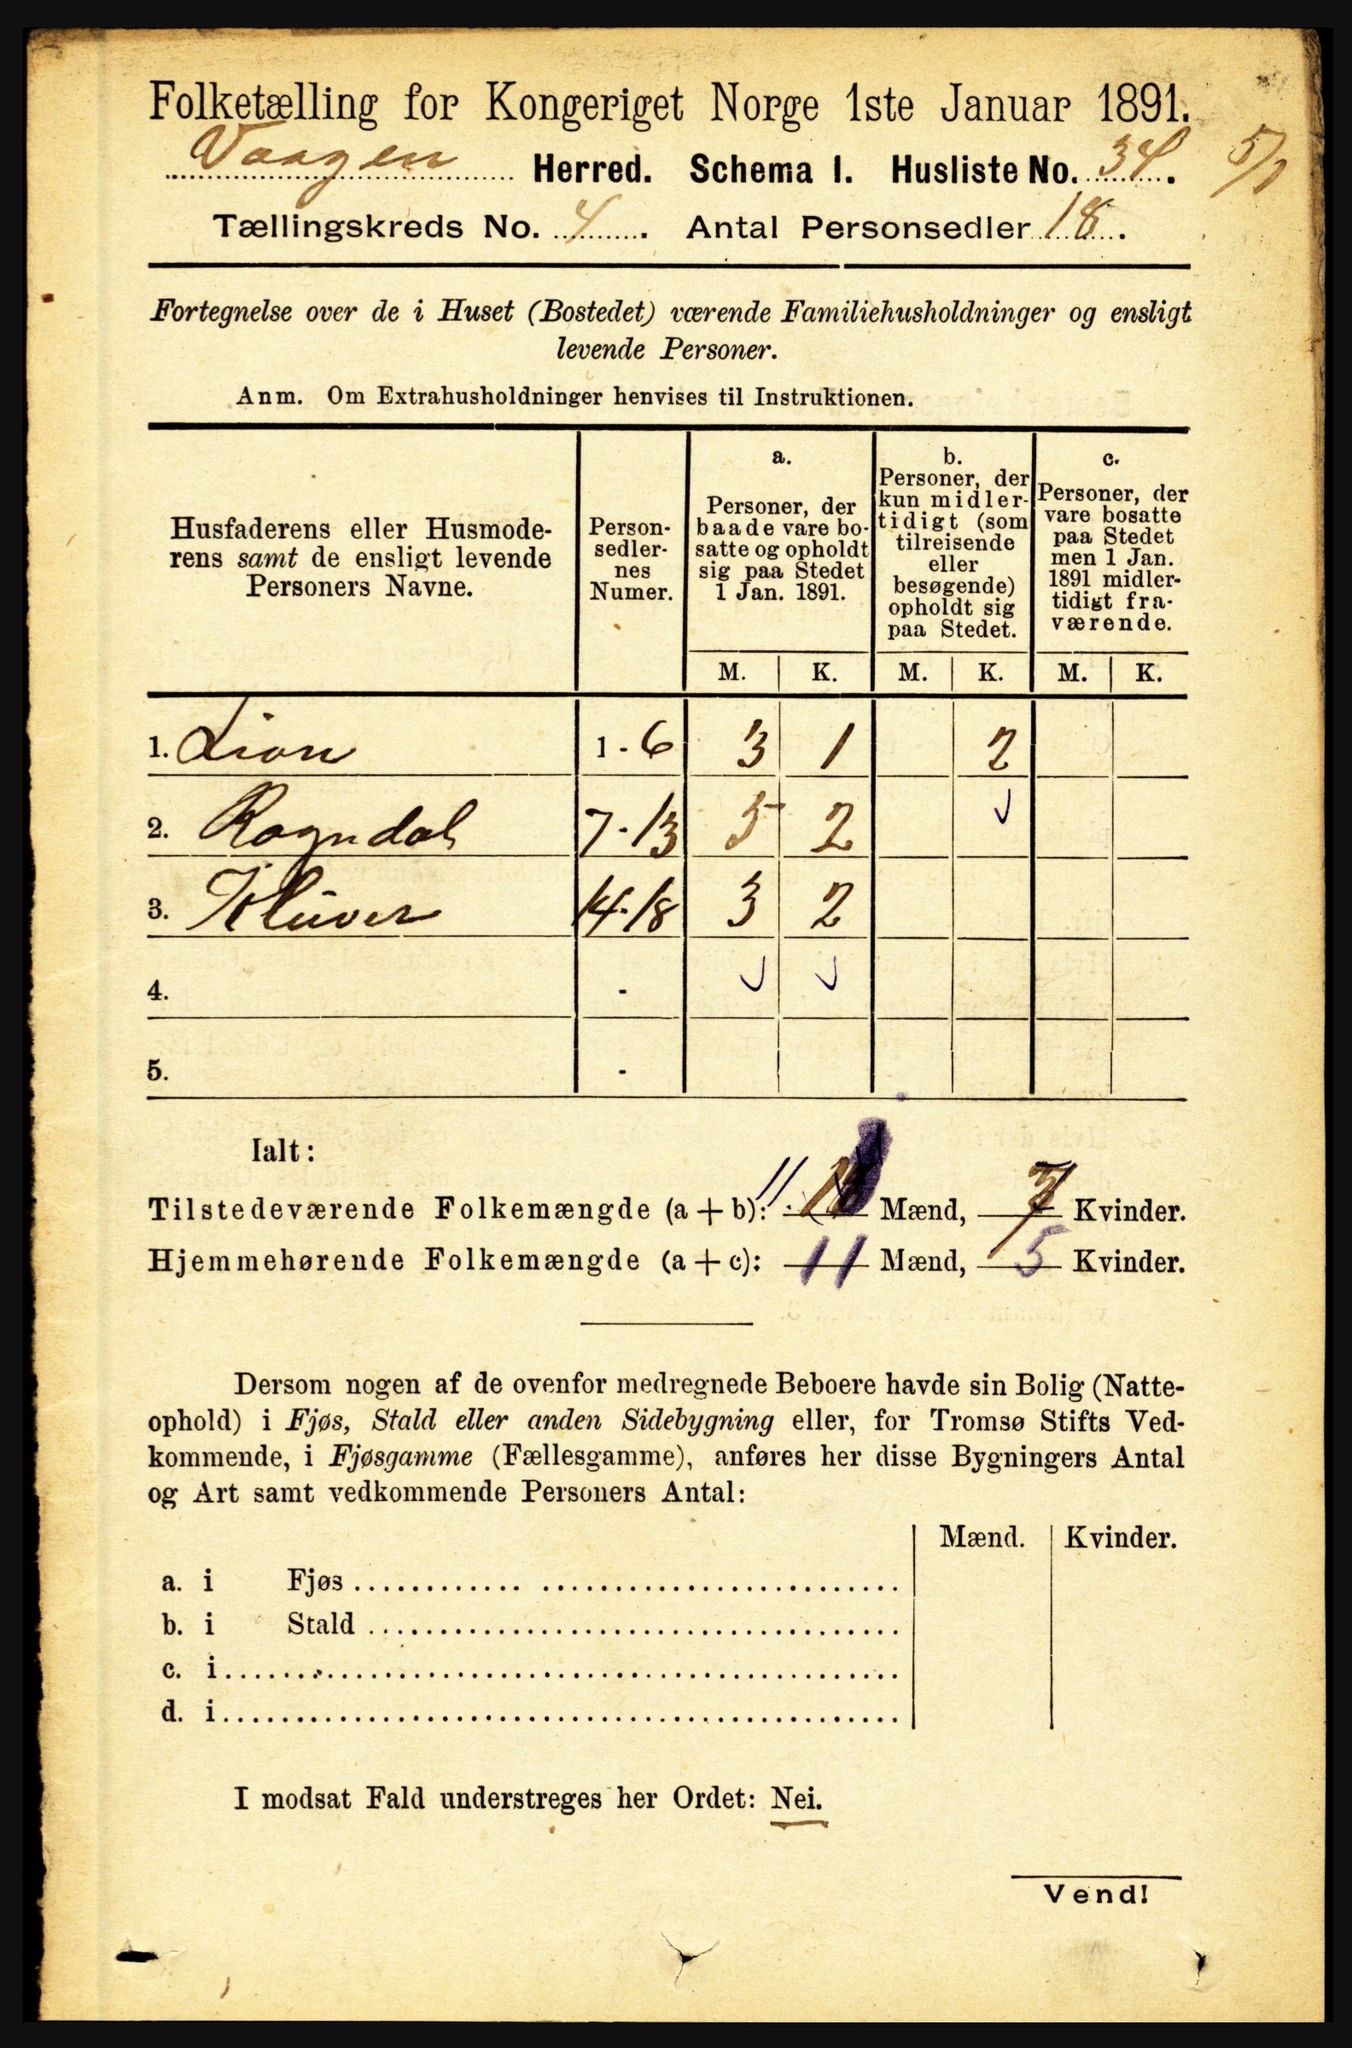 Folketælling for Kongeriget Norge 1ste Januar 1891.
Vaagen Herred. Schema I. Husliste No. 34. 5/1
Tællingskreds No. 4. Antal Personsedler 18.
Fortegnelse over de i Huset (Bostedet) værende Familiehusholdninger og ensligt
levende Personer.
Anm. Om Extrahusholdninger henvises til Instruktionen.
Husfaderens eller Husmode-
rens samt de ensligt levende
Personers Navne.
Person-
sedler-
nes
Numer.
a.
Personer, der
baade vare bo-
satte og opholdt
sig paa Stedet
1 Jan. 1891.
b.
Personer, der
kun midler-
tidigt (som
tilreisende
eller
besøgende)
opholdt sig
paa Stedet.
c.
Personer, der
vare bosatte
paa Stedet
men 1 Jan.
1891 midler-
tidigt fra-
værende.
M. K. M. K. M. K.
1. Lion 1-6 3 1 2
2. Rogndal 7-13 5 2
3. Klüver 14-18 3 2
4. -
5. -
Ialt:
Tilstedeværende Folkemængde (a + b): 11 Mænd, 7 Kvinder.
Hjemmehørende Folkemængde (a + c): 11 Mænd, 5 Kvinder.
Dersom nogen af de ovenfor medregnede Beboere havde sin Bolig (Natte-
ophold) i Fjøs, Stald eller anden Sidebygning eller, for Tromsø Stifts Ved-
kommende, i Fjøsgamme (Fællesgamme), anføres her disse Bygningers Antal
og Art samt vedkommende Personers Antal:
Mænd. Kvinder.
a. i Fjøs
b. i Stald
c. i
d. i
I modsat Fald understreges her Ordet: Nei.
Vend!